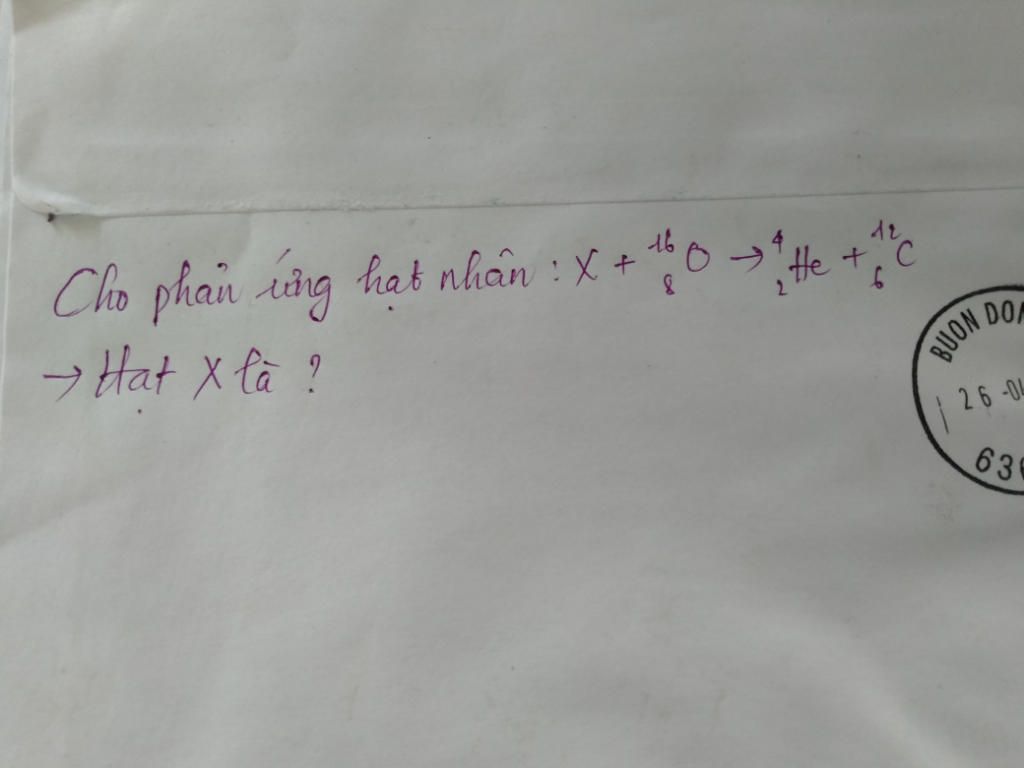 Cho phản ứng hạt nhân : X + ¹⁶₈O → ⁴₂He + ¹²₆C
→ Hạt X là ?
BUON DON
26 -04
636